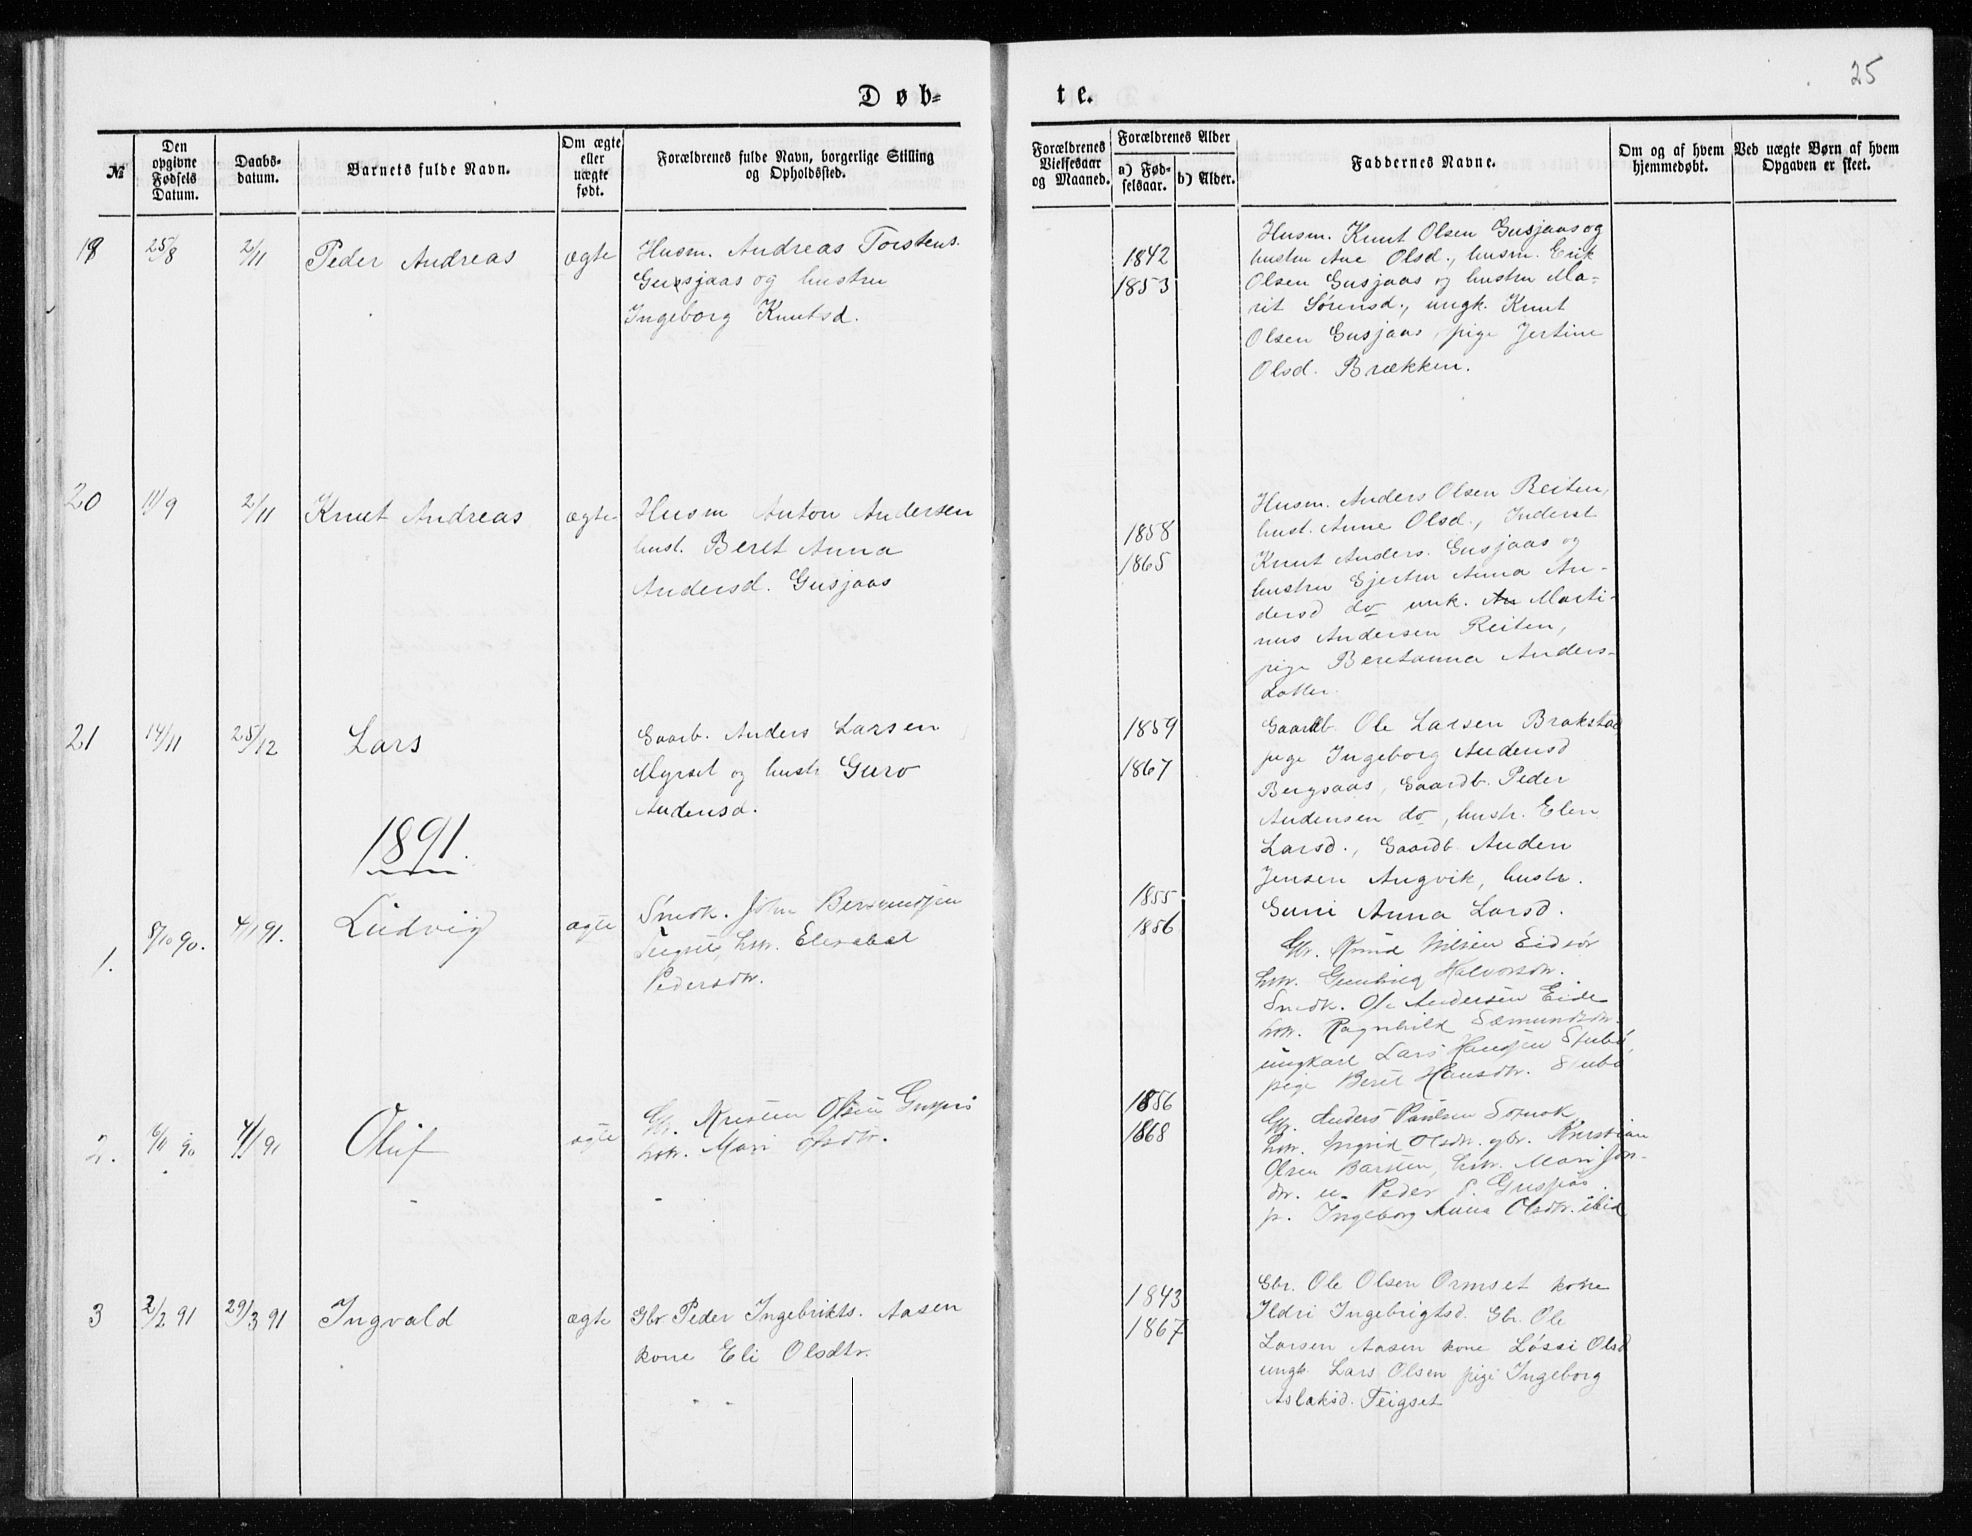 25
Døb-
te.
№
Den opgivne Fødsels Datum.
Daabs-datum.
Barnets fulde Navn.
Om ægte eller uægte født.
Forældrenes fulde Navn, borgerlige Stilling og Opholdssted.
Forældrenes Vielsesaar og Maaned.
Forældrenes Alder
a) Fød-selsaar.
b) Alder.
Faddernes Navne.
Om og af hvem hjemmedøbt.
Ved uægte Børn af hvem Opgaven er skeet.
25/8
2/11
Peder Andreas
ægte
Husm. Andreas Torstens.
Gusjaas og hustru
Ingeborg Knutsd.
1842
1853
Husm. Knut Olsen Gusjaas og
hustru Ane Olsd., husm. Erik
Olsen Gusjaas og hustru Ma-
rit Sørensd., ungk. Knut
Olsen Gusjaas, pige Jertine
Olsd. Brækken.
20
11/9
2/11
Knut Andreas
ægte
Husm Anton Andersen
hust. Beret Anna
Andersd. Gusjaas
1858
1865
Husm. Anders Olsen Reiten,
hust. Anne Olsd., Inderst
Knut Anders. Gusjaas og
hustru Gjertru Anna An-
dersd do unk. Marti-
nus Andersen Reiten,
pige Beretanna Anders-
datter.
21
14/11
25/12
Lars
Gaarb. Anders Larsen
Myrset og hustr Guro
Andersd.
1859
1867
Gaardb. Ole Larsen Brakstad
pige Ingeborg Andersd
Bergsaas, Gaardb. Peder
Andersen do, hustr. Elen
Larsd., Gaardb. Anders
Jensen Angvik, hustr.
Guri Anna Larsd.
1891.
1.
8/10 90.
4/1 91.
Ludvig
ægte
Smdk. John
hstr. Elisabet
Pedersdtr.
1855
1856
Gbr. Knud Nilsen Eidsør
hstr. Halvorsdtr.
Smdk. Ole Andersen Eide
hstr. Ragnhild Sæmundsdtr.
ungkarl Lars Hansen Stubø,
pige Berit Hansdtr. Stubø
2.
6/11 90
4/1 91
Oluf
ægte
Gbr. Kristen Olsen Gusjås
hstr. Mari Olsdtr.
1856
1868
Gbr. Anders Paulsen
hstr. Ingrid Olsdtr. gbr. Kristian
Olsen hstr. Mari Jon-
dtr. u. Peder P. Gusjås
p. Ingeborg Anna Olsdtr. ibid
3
2/2 91
29/3 91
Ingvald
ægte
Gbr Peder Ingebrikts. Aasen
kone Eli Olsdtr.
1843
1867
Gbr. Ole Olsen Ormset kone
Ildri Ingebrigtsd. Gbr. Ole
Larsen Aasen kone Løssi Olsd
ungk. Lars Olsen pige Ingeborg
Aslaksd. Teigset